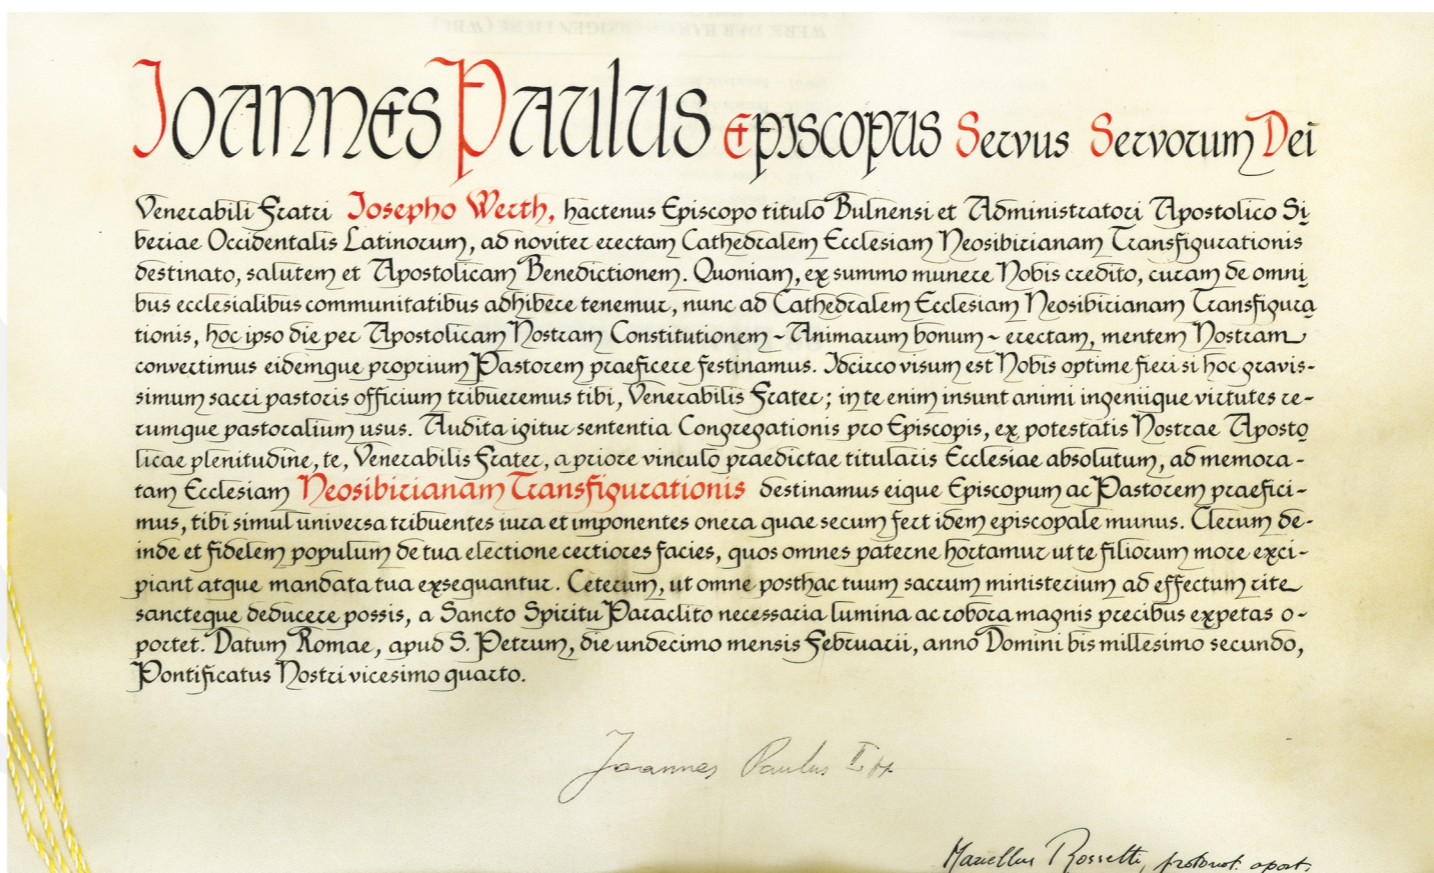 Joannes Paulus Episcopus Servus Servorum Dei
Venerabili Fratri Josepho Werth, hactenus Episcopo titulo Bulnensi et Administratori Apostolico Si
beriae Occidentalis Latinorum, ad noviter erectam Cathedralem Ecclesiam Neosibirianam Transfigurationis
destinato, salutem et Apostolicam Benedictionem. Quoniam, ex summo munere Nobis credito, curam de omni
bus ecclesialibus communitatibus adhibere tenemur, nunc ad Cathedralem Ecclesiam Neosibirianam Transfigura
tionis, hoc ipso die per Apostolicam Nostram Constitutionem ~ Animarum bonum ~ erectam, mentem Nostram
convertimus eidemque proprium Pastorem praeficere festinamus. Idcirco visum est Nobis optime fieri si hoc gravis-
simum sacri pastoris officium tribueremus tibi, Venerabilis Frater; in te enim insunt animi ingeniique virtutes re-
rumque pastoralium usus. Audita igitur sententia Congregationis pro Episcopis, ex potestatis Nostrae Aposto
licae plenitudine, te, Venerabilis Frater, a priore vinculo praedictae titularis Ecclesiae absolutum, ad memora-
tam Ecclesiam Neosibirianam Transfigurationis destinamus eique Episcopum ac Pastorem praefici-
mus, tibi simul universa tribuentes iura et imponentes onera quae secum fert idem episcopale munus. Clerum de-
inde et fidelem populum de tua electione certiores facies, quos omnes paterne hortamur ut te filiorum more exci-
piant atque mandata tua exsequantur. Ceterum, ut omne posthac tuum sacrum ministerium ad effectum rite
sancteque deducere possis, a Sancto Spiritu Paraclito necessaria lumina ac robora magnis precibus expetas o-
portet. Datum Romae, apud S. Petrum, die undecimo mensis Februarii, anno Domini bis millesimo secundo,
Pontificatus Nostri vicesimo quarto.
Joannes Paulus II
Marcellus Rossetti, protonot. apost.